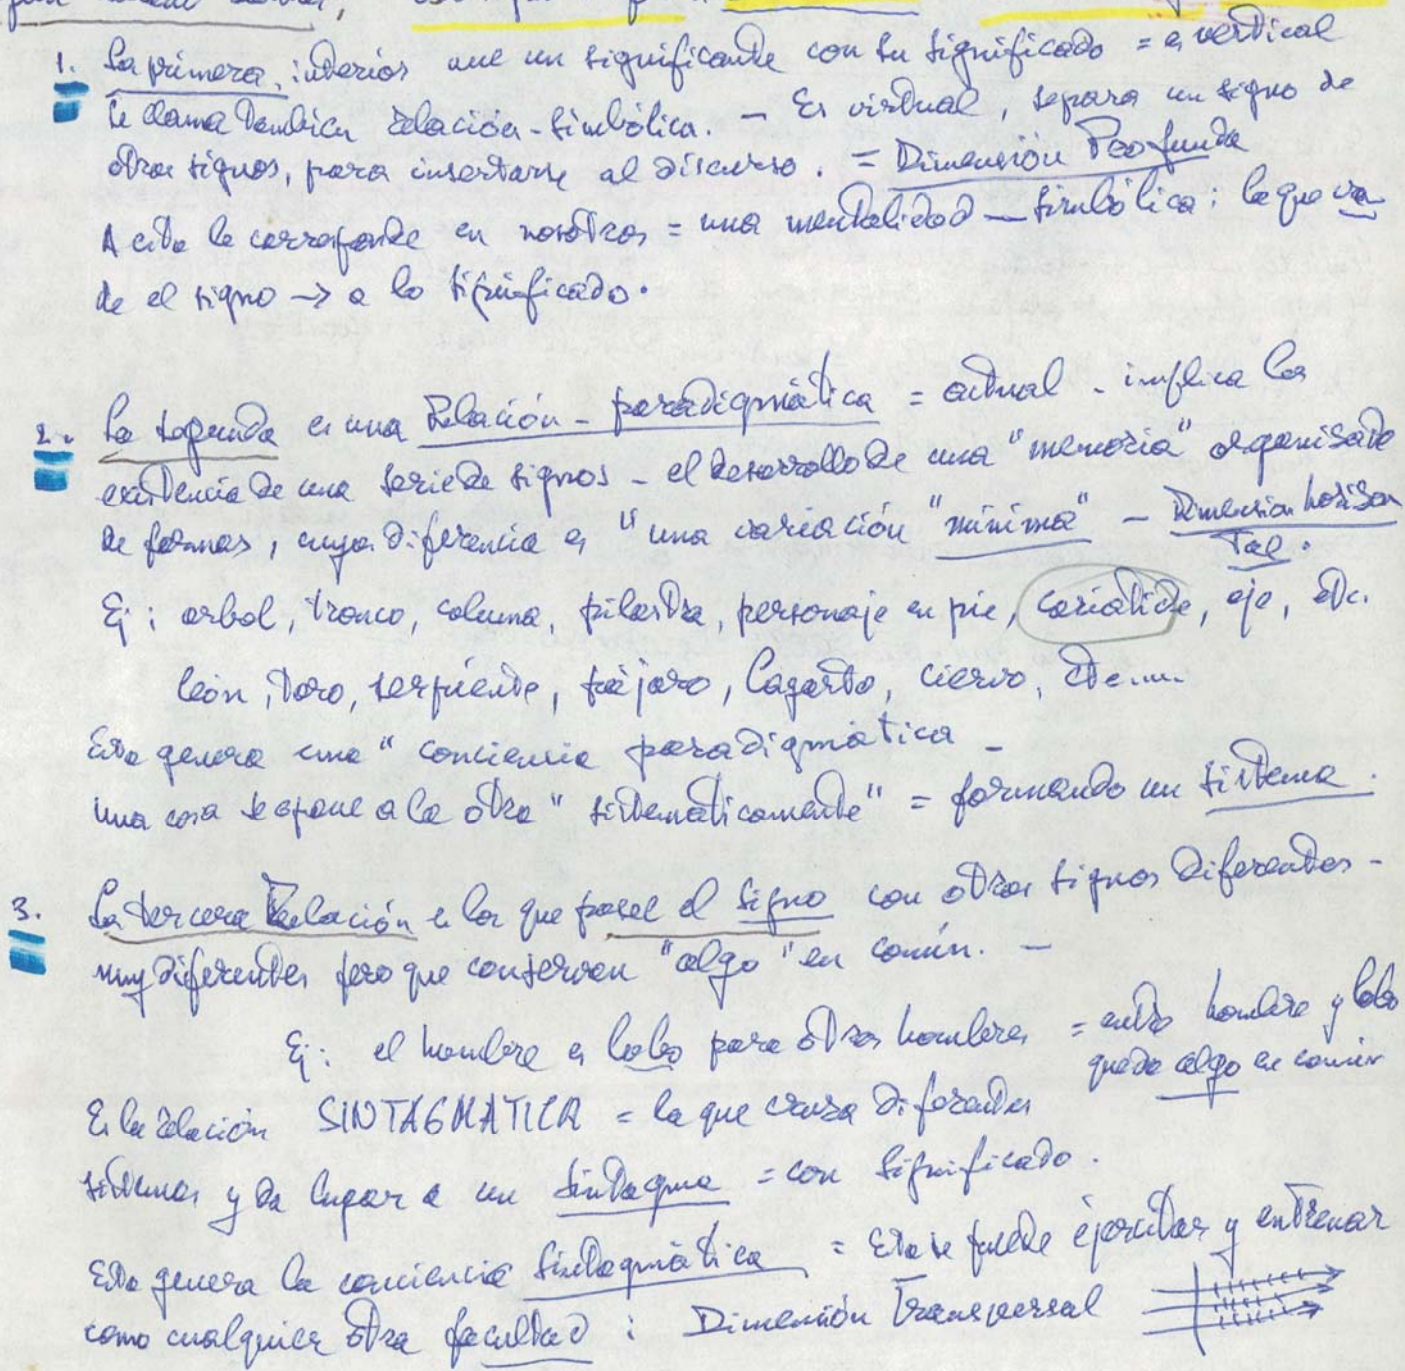 1. La primera, interior une un significante con su significado = es vertical
se llama tambien relación-simbólica. — Es virtual, separa un signo de
otros signos, para insertarse al discurso. = Dimensión Profunda
A esta le corresponde en nosotros = una mentalidad — simbólica: la que va
de el signo → a lo significado.
2. La segunda es una Relación - paradigmática = actual - implica la
existencia de una serie de signos - el desarrollo de una "memoria" organisada
de formas, cuya diferencia es "una variación "mínima" — Dimension horison
tal.
Ej: arbol, tronco, columna, pilastra, personaje en pie, cariatide, eje, etc.
león, toro, serpiente, pájaro, lagarto, ciervo, etc....
Esta genera una "conciencia paradigmática -
una cosa se opone a la otra "sistemáticamente" = formando un sistema.
3. La tercera Relación es la que posee el signo con otros signos diferentes -
muy diferentes pero que conserven "algo" en común. —
Ej: el hombre es lobo para otros hombres = entre hombre y lobo
queda algo en común
Es la relación SINTAGMATICA = la que cruza diferentes
sistemas y da lugar a un sintagma = con significado.
Esta genera la conciencia sintagmática = Esta se puede ejercitar y entrenar
como cualquier otra facultad: Dimensión Transversal